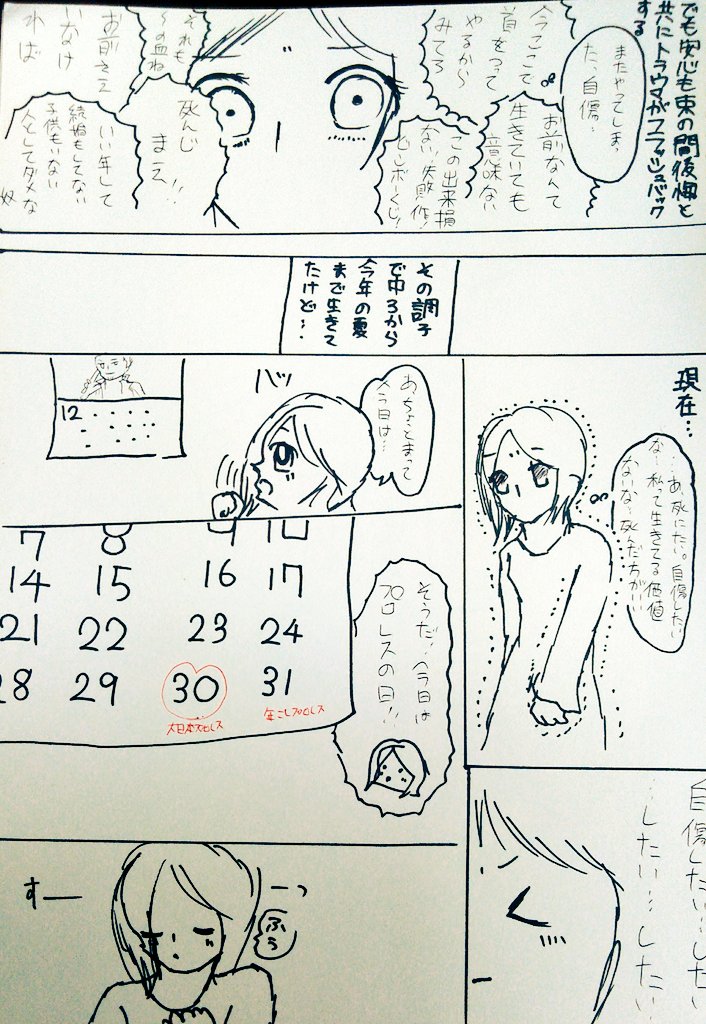 でも安心も束の間後悔と
共にトラウマがフラッシュバック
する
またやってしまっ
た、自傷…
今ここで
首をつって
やるから
みてろ
お前なんて
生きていても
意味ない
この出来損
ない!失敗作!
ビンボーくじ!
それも
〜の血ね
死んじ
まえ!!
お前さえ
いなけ
れば
いい年して
結婚もしてない
子供もいない
人としてダメな
奴
その調子
で中3から
今年の夏
まで生きて
たけど…
現在…
あ、死にたい。自傷したい
な…私って生きてる価値
ないな…死んだ方がいい
自傷したい…した
…したい…したい
あ、ちょっとまって
今日は…
バッ
12
7 8 9 10
14 15 16 17
21 22 23 24
28 29 30 31
大日本プロレス
年こしプロレス
そうだ!今日は
プロレスの日!!
すーーっ
ふぅ